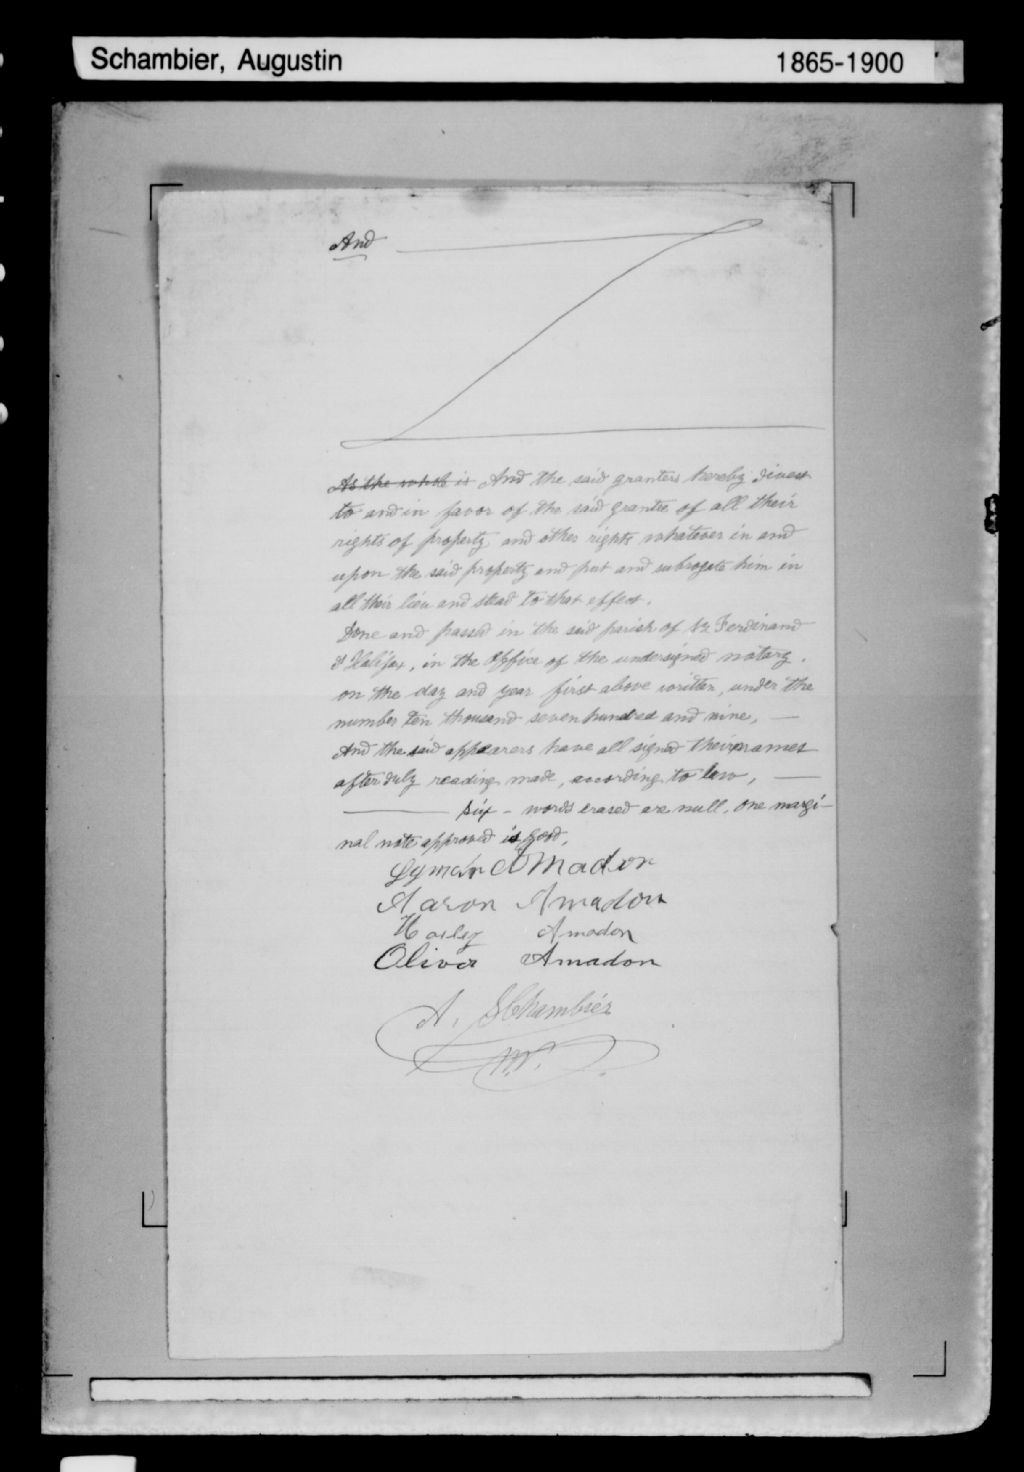 Schambier, Augustin 1865-1900
And
As the whole is And the said granters hereby divest
to and in favor of the said grantee of all their
rights of property and other rights whatever in and
upon the said property and put and subrogate him in
all their lieu and stead to that effect.
Done and passed in the said parish of St Ferdinand
d'Halifax, in the office of the undersigned notary.
on the day and year first above written, under the
number ten thousand seven hundred and nine, —
And the said appearers have all signed their names
after duly reading made, according to law, —
— six - words erased are null. One margi-
nal note approved is good.
Lyman Amadon
Aaron Amadon
Harley Amadon
Oliver Amadon
A. SChambier
N.P.